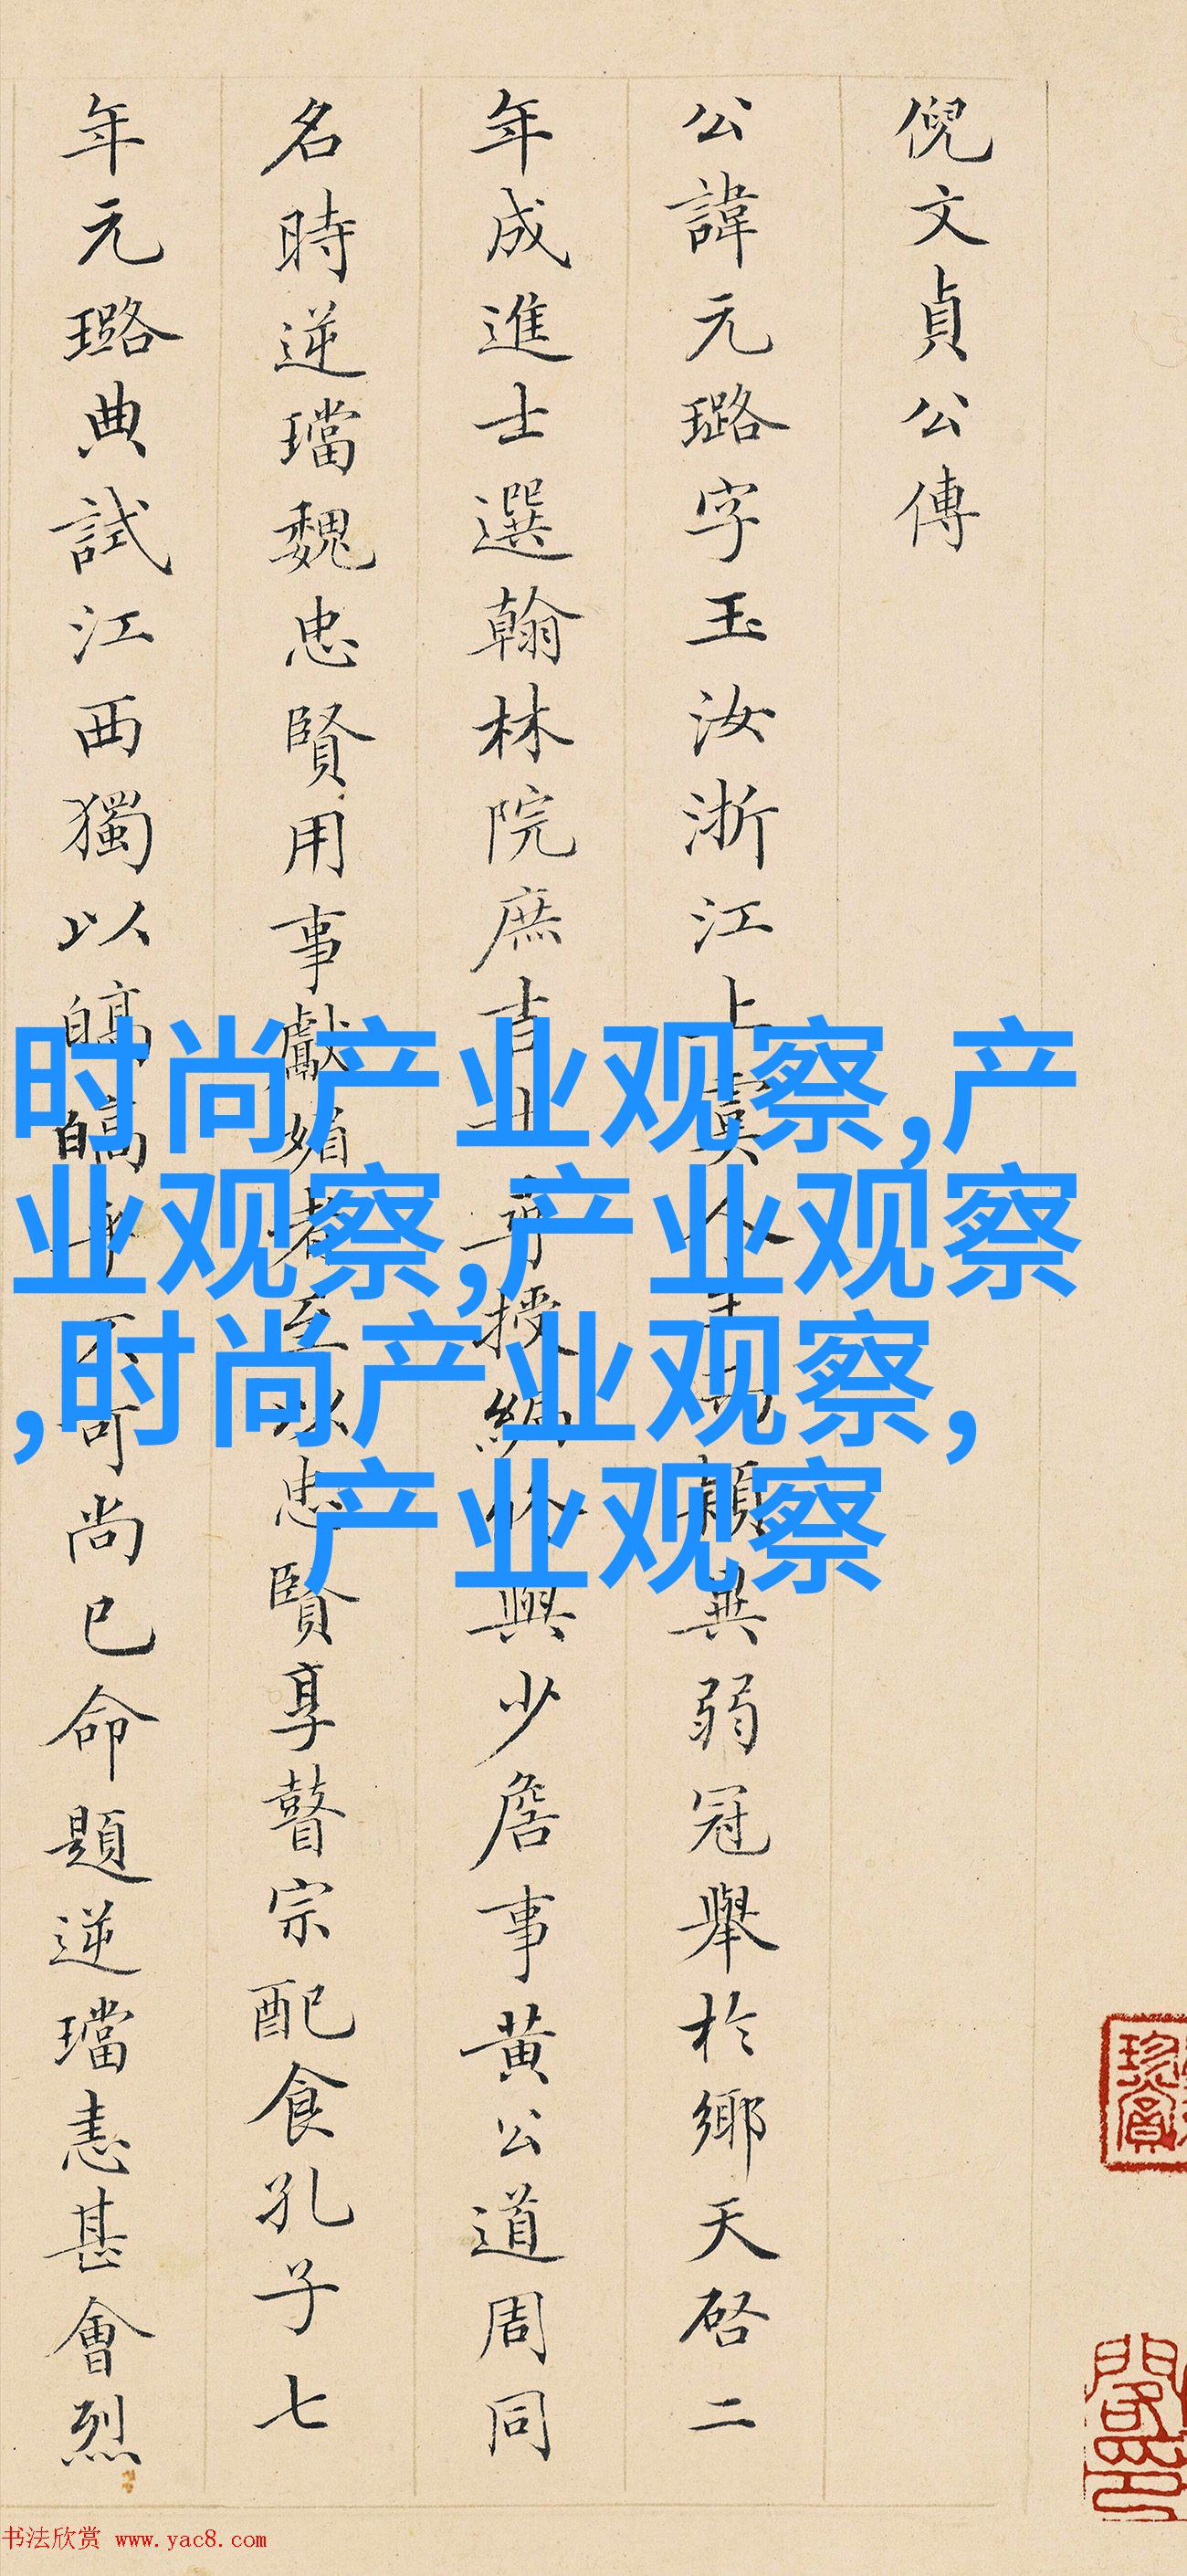 倪文貞公傳
公諱元璐字玉汝浙江上虞人穎異弱冠舉於鄉天啓二
年成進士選翰林院庶吉士授編修與少詹事黄公道周同
名時逆璫魏忠賢用事獻媚者至以忠賢享瞽宗配食孔子七
年元璐典試江西獨以皜皜乎不可尚已命題逆璫恚甚會烈
时尚产业观察,产
业观察,产业观察
,时尚产业观察,
产业观察
珍賞
书法欣赏 www.yac8.com